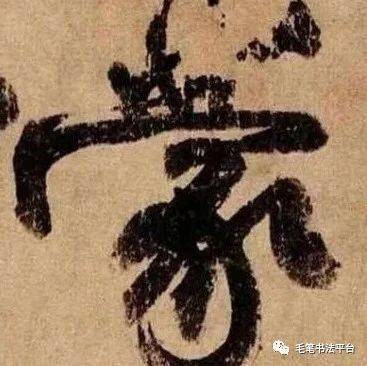 蒙
毛笔书法平台